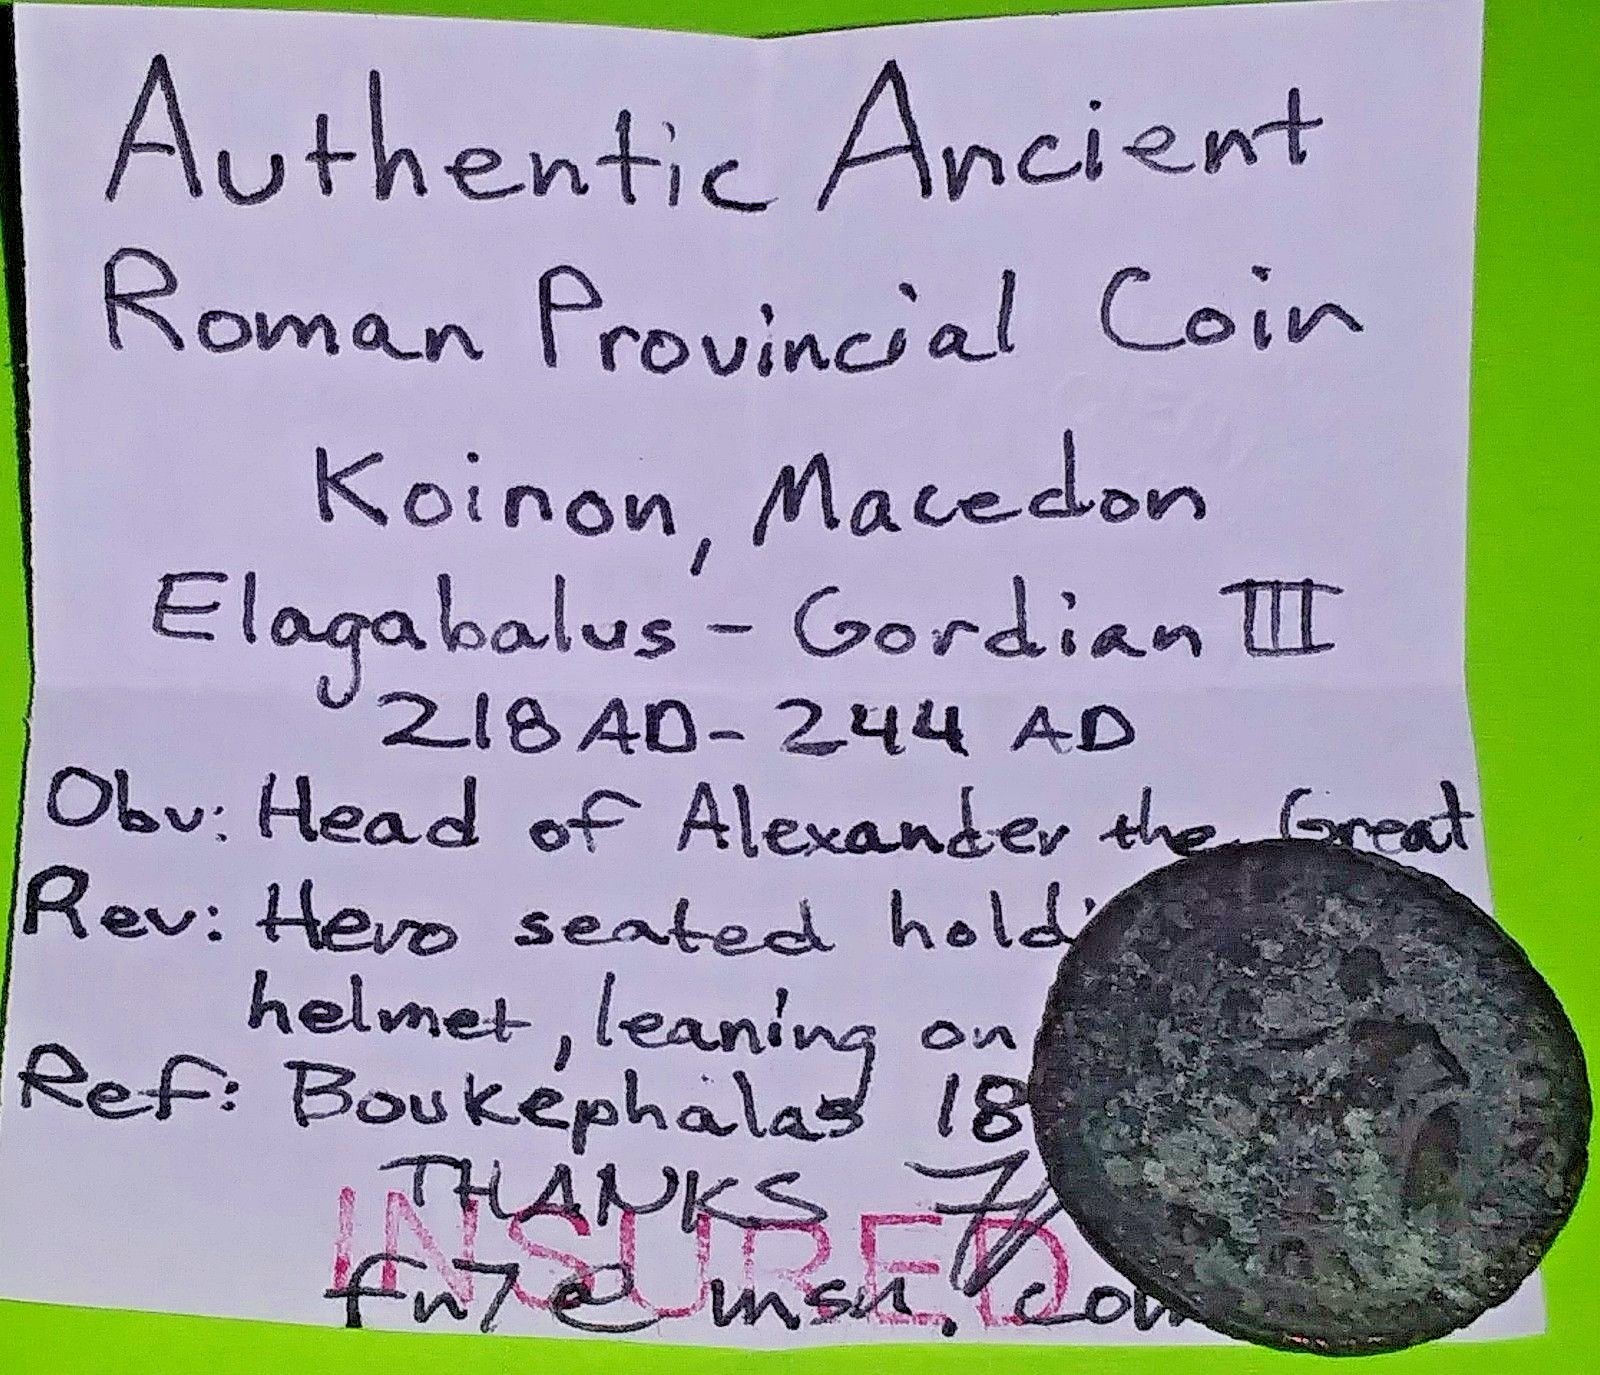 Authentic Ancient
Roman Provincial Coin
Koinon, Macedon
Elagabalus - Gordian III
218 AD - 244 AD
Obv: Head of Alexander the Great
Rev: Hero seated holdi
helmet, leaning on
Ref: Boukephalas 18
THANKS
INSURED
fn7@msn.com